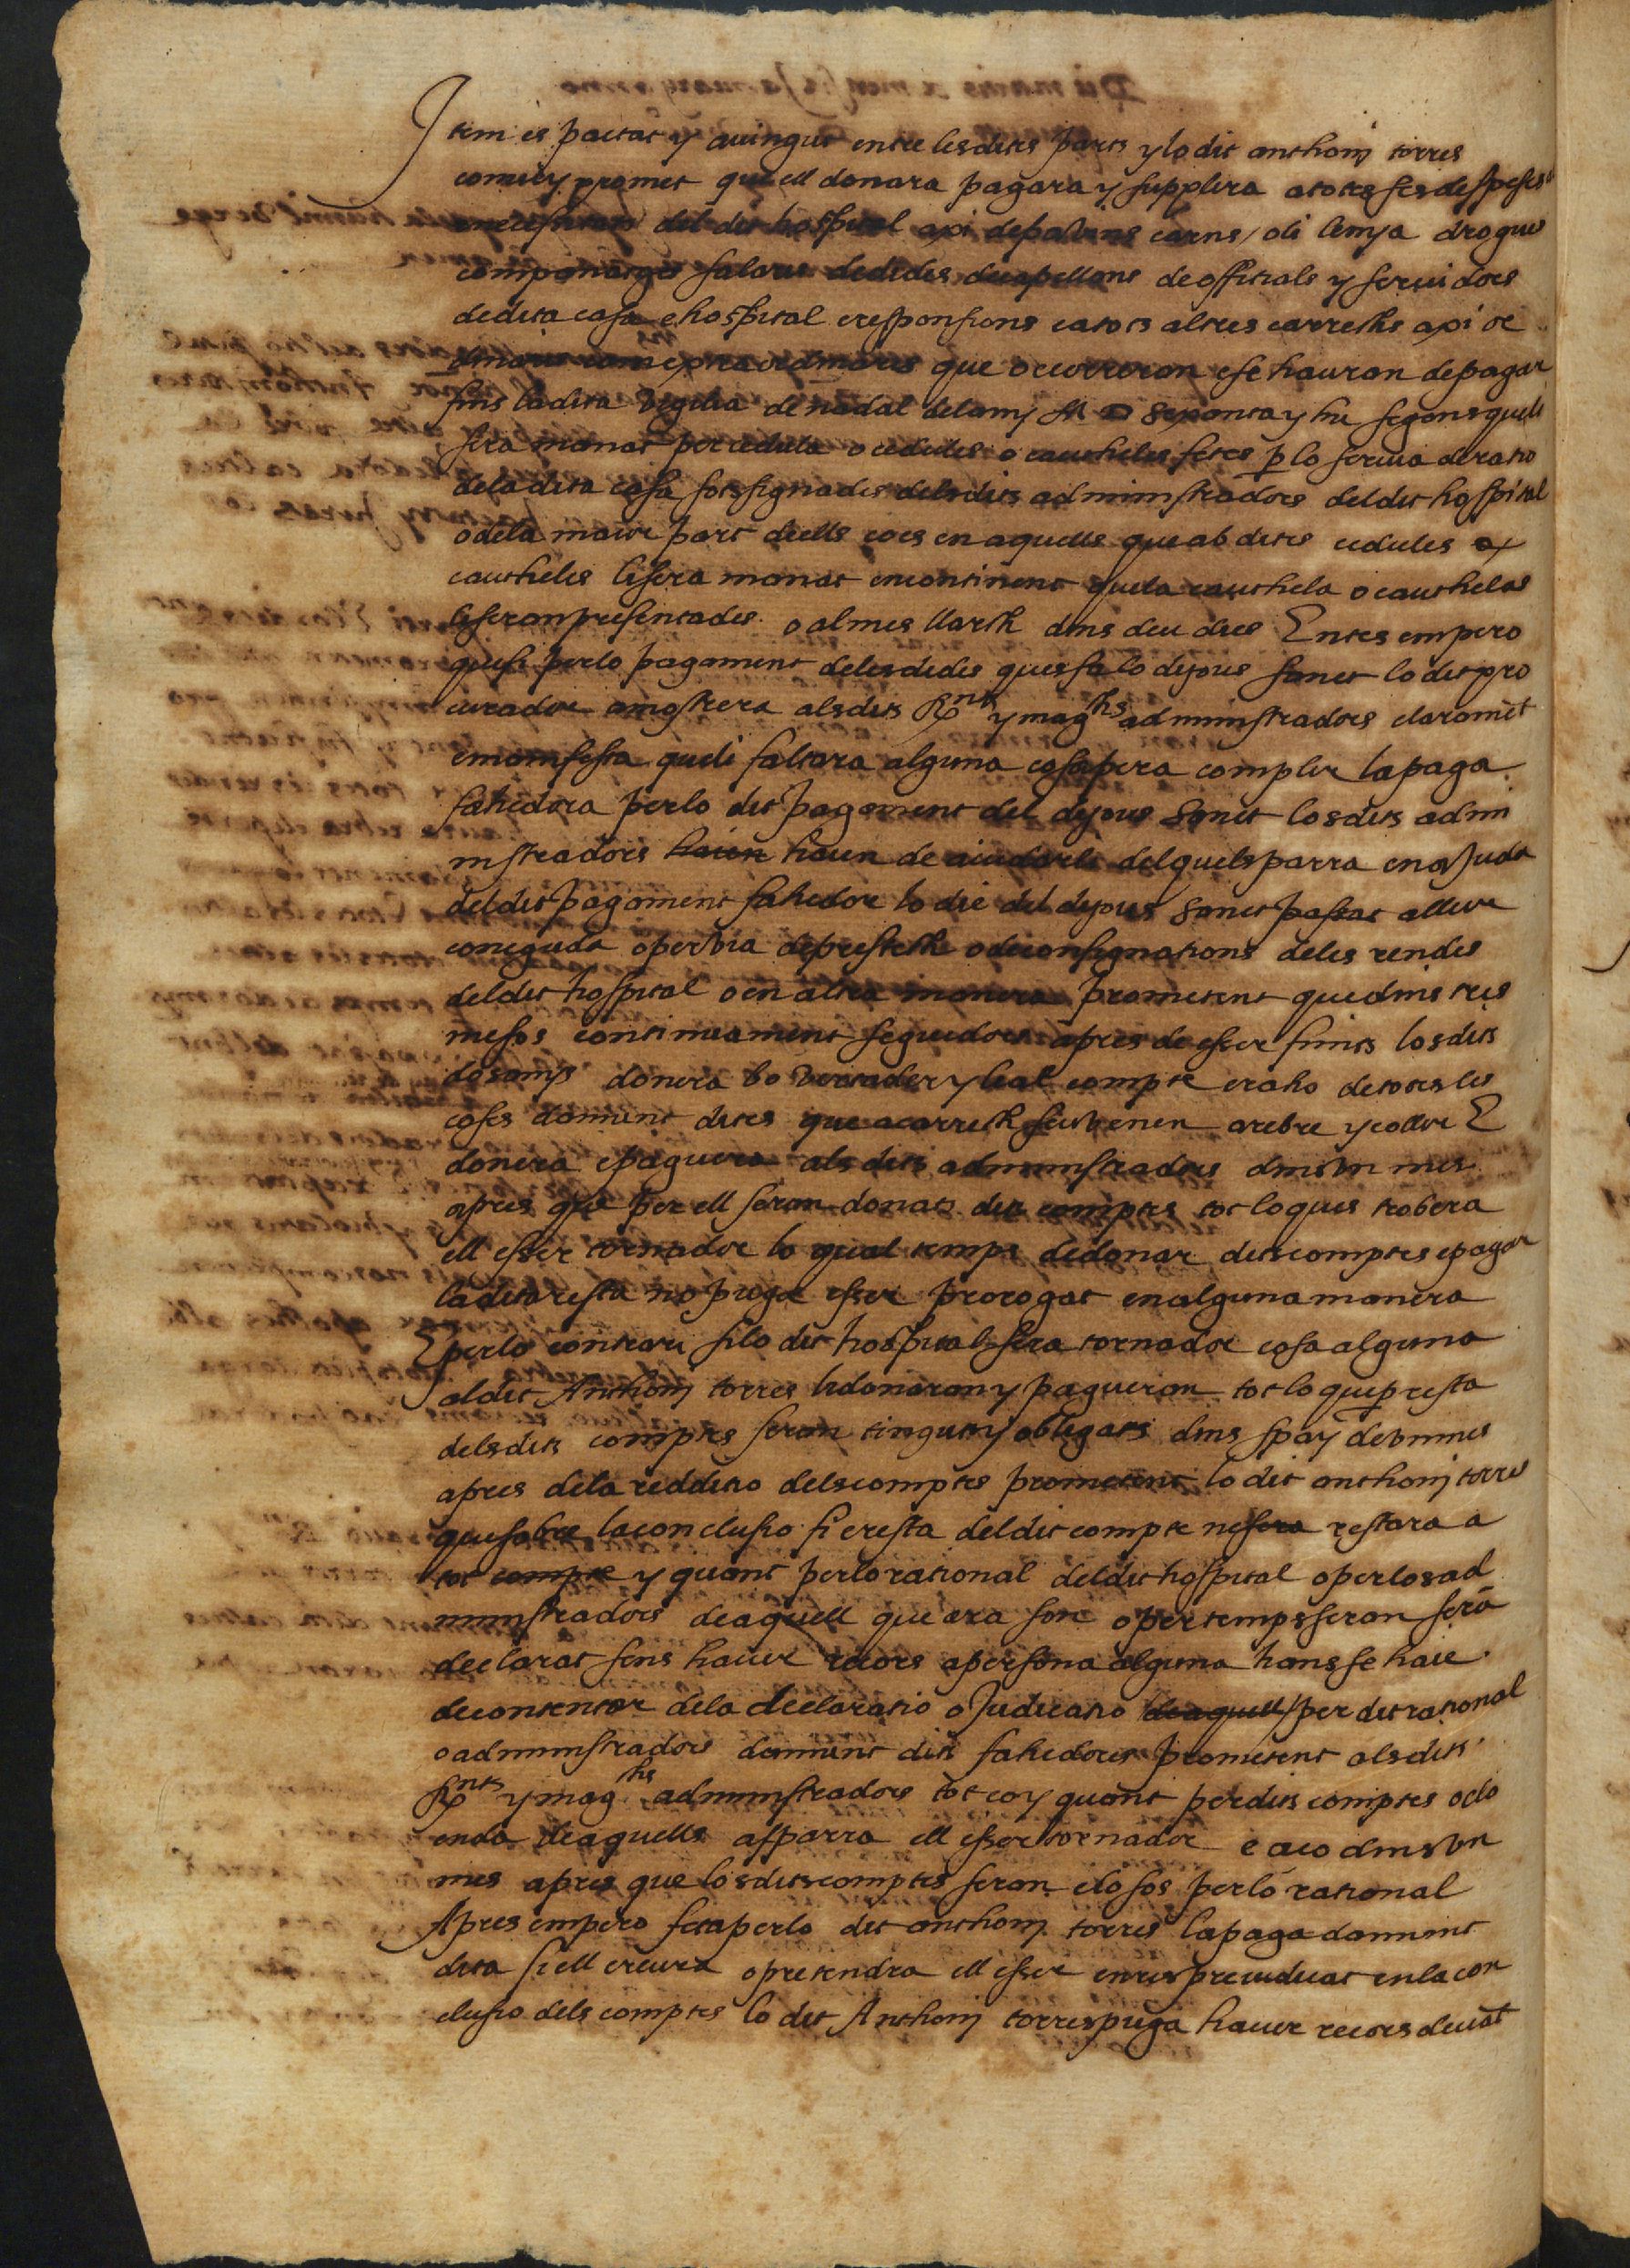 Item es pactat y auingut entre lesdites parts y lo dit anthonj torres
conue y promet que ell donara pagara y supplira a totes les despeses
e necessitats del dit hospital axi de pa vins carns / oli lenya drogues
companatges salaris dedides de capellans de officials y seruidors
de dita casa e hospital e responsions e a tots altres carrechs axi or
dinaris com extraordinaris que occorreran e se hauran de pagar
fins la dita vigilia de nadal del any M D sexanta y hu segons que li
sera manat per cedula o cedules o cautheles fetes p lo scriua de ratio
de la dita casa sotsignades dels dits administradors del dit hospital
o de la maior part de ells ço es en aquells que ab dites cedules o
cautheles li sera manat encontinent que la cauthela o cauthelas
li seran presentades o al mes llarch dins deu dies Entes empero
que si per lo pagament de les dides ques fa lo dijous sanct lo dit pro
curador amostrera als dits Rnts y maghs administradors clarament
e manifesta que li faltara alguna cosa pera complir la paga
fahedora per lo dit pagament del dijous sanct los dits admi
nistradors haien de aiudarli del quels parra en ajuda
del dit pagament fahedor lo die del dijous sanct passat a lleur
coneguda o per via de prestech o de consignations de les rendes
del dit hospital o en altra manera prometent que dins tres
mesos continuament seguidors apres de esser finits los dits
dos anys donera bo vertader y leal compte e raho de totes les
coses damunt dites que a carrech seu venen a rebre y collir E
donera e paguera als dits administradors dins vn mes
apres que per ell seran donats dits comptes tot lo ques trobera
ell esser tornador lo qual temps de donar dits comptes e pagar
la dita resta no puga esser prorogat en alguna manera
E per lo contrari si lo dit hospital sera tornador cosa alguna
al dit Anthonj torres li donaran y pagueran tot lo que p resta
dels dits comptes seran tinguts y obligats dins spay de vn mes
apres de la redditio dels comptes prometent lo dit anthonj torres
que sobre la conclusio si e resta del dit compte restara a
tot y quant per lo rational del dit hospital o per los ad
ministradors de aquell que ara son o per temps seran sera
declarat sens hauer recors a persona alguna hans se haie
de contentar de la declaratio o judicatio de aquell per dit rational
o administradors damunt dits fahedores prometent als dits
Rnts y maghs administradors tot ço y quant per dits comptes o clo
enda de aquells apparra ell esser tornador e aço dins vn
mes apres que los dits comptes seran closos per lo rational
Apres empero feta per lo dit anthonj torres la paga damunt
dita si ell creura o pretendra ell esser en res preiudicat en la con
clusio dels comptes lo dit Anthonj torres puga hauer recors deuat